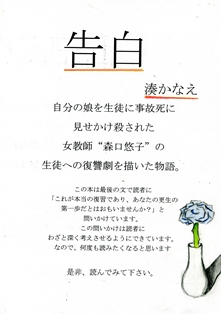 告白
湊かなえ
自分の娘を生徒に事故死に
見せかけ殺された
女教師“森口悠子”の
生徒への復讐劇を描いた物語。
この本は最後の文で読者に
「これが本当の復習であり、あなたの更生の
第一歩だとはおもいませんか？」と
問いかけています。
この問いかけは読者に
わざと深く考えさせるようにできています。
なので、何度も読みたくなると思います
是非、読んでみて下さい。